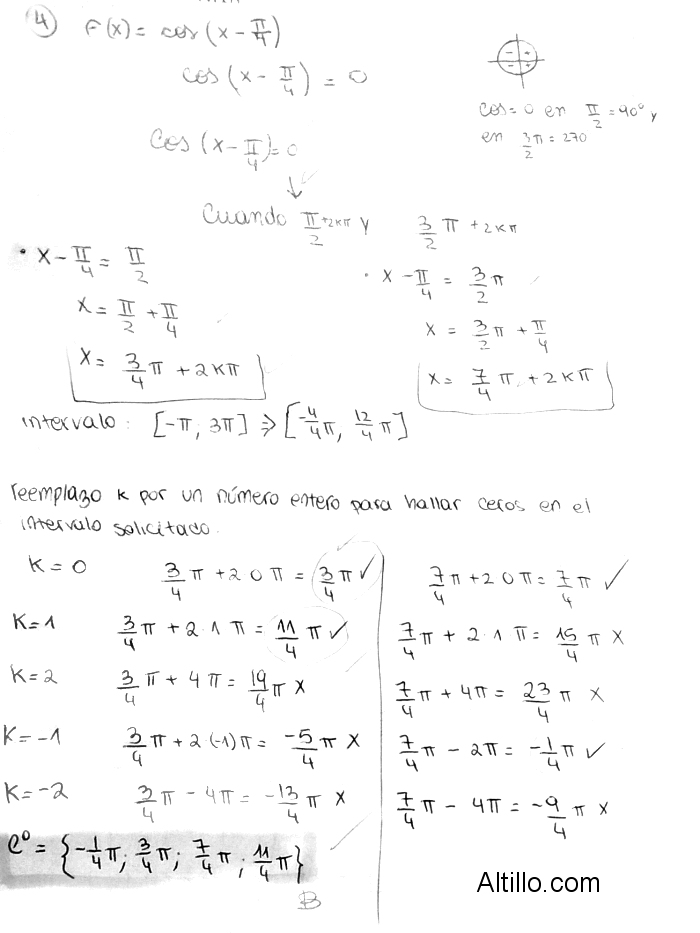 4 F(x) = cos (x - π/4)
cos (x - π/4) = 0
- +
- +
cos = 0 en π/2 = 90° y
en 3π/2 = 270
cos (x - π/4) = 0
↓
Cuando π/2 + 2kπ y 3/2 π + 2kπ
• x - π/4 = π/2
x = π/2 + π/4
x = 3/4 π + 2kπ
· x - π/4 = 3/2 π
x = 3/2 π + π/4
x = 7/4 π + 2kπ
intervalo: [-π; 3π] ⇒ [-4/4 π, 12/4 π]
reemplazo k por un número entero para hallar ceros en el
intervalo solicitado.
K = 0 3/4 π + 2 0 π = 3/4 π ✓ 7/4 π + 2 0 π = 7/4 π ✓
K = 1 3/4 π + 2 · 1 π = 11/4 π ✓ 7/4 π + 2 · 1 π = 15/4 π X
K = 2 3/4 π + 4π = 19/4 π X 7/4 π + 4π = 23/4 π X
K = -1 3/4 π + 2 · (-1) π = -5/4 π X 7/4 π - 2π = -1/4 π ✓
K = -2 3/4 π - 4π = -13/4 π X 7/4 π - 4π = -9/4 π X
C⁰ = {-1/4 π; 3/4 π; 7/4 π; 11/4 π}
B
Altillo.com